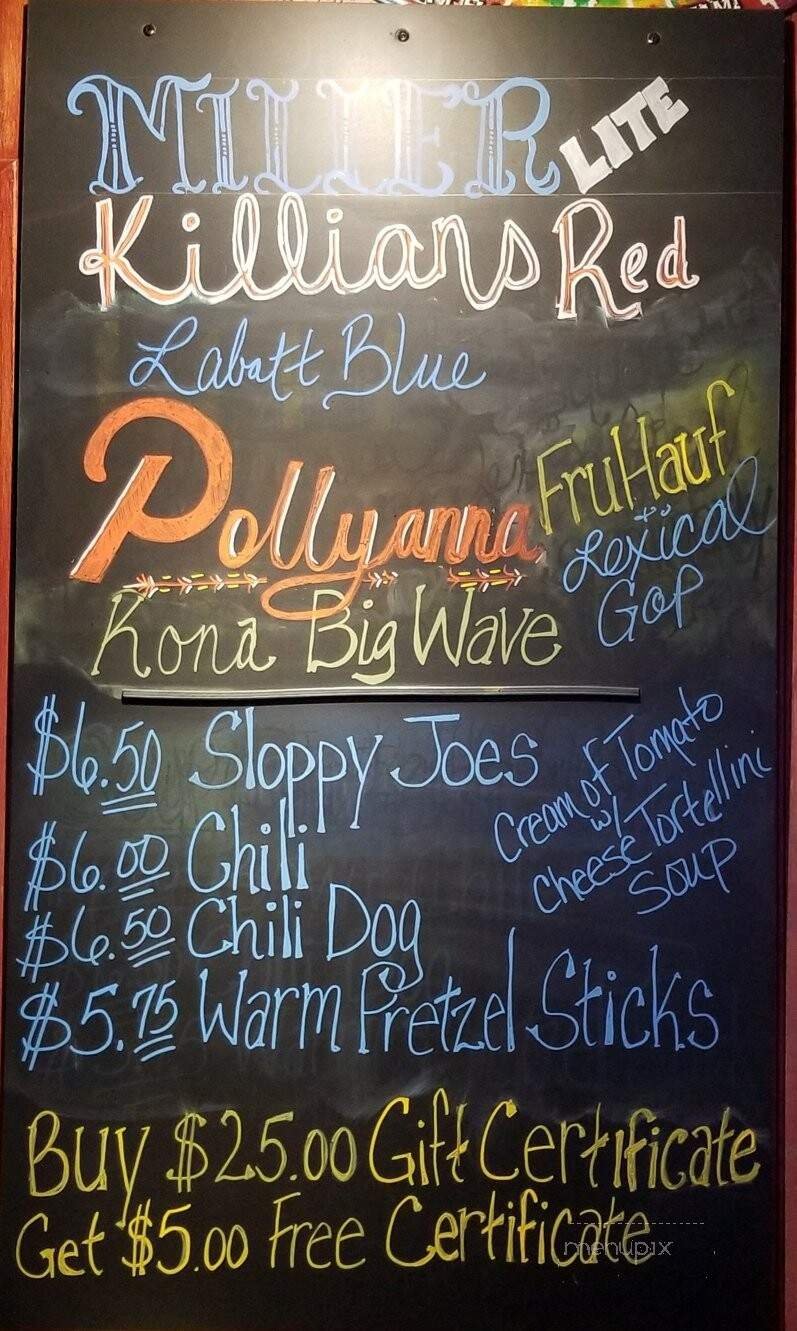 MILLER LITE
Killians Red
Labatt Blue
Pollyanna FruHauf
Lexical
Gap
Kona Big Wave
$6.50 Sloppy Joes
Cream of Tomato
w/
Cheese Tortellini
Soup
$6.00 Chili
$6.50 Chili Dog
$5.75 Warm Pretzel Sticks
Buy $25.00 Gift Certificate
Get $5.00 Free Certificate
menupix